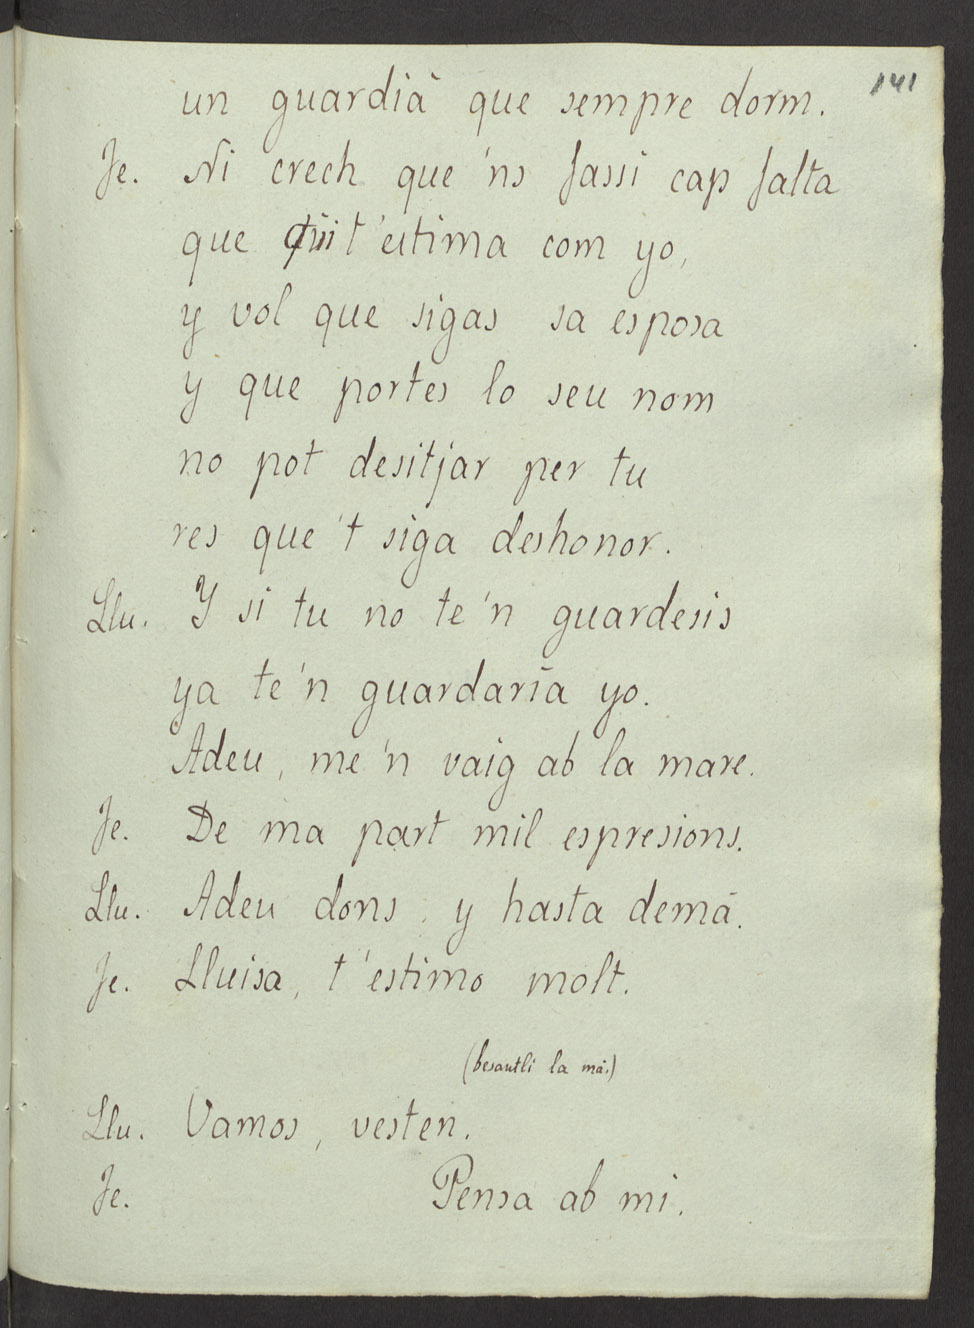 141
un guardiá que sempre dorm.
Je. Ni crech que 'ns fassi cap falta
que qui t'estima com yo,
y vol que sigas sa esposa
y que portes lo seu nom
no pot desitjar per tu
res que 't siga deshonor.
Llu. Y si tu no te'n guardesis
ya te'n guardaría yo.
Adeu, me'n vaig ab la mare.
Je. De ma part mil espresions.
Llu. Adeu dons, y hasta demá.
Je. Lluisa, t'estimo molt.
(besantli la má.)
Llu. Vamos, vesten.
Je. Pensa ab mi.